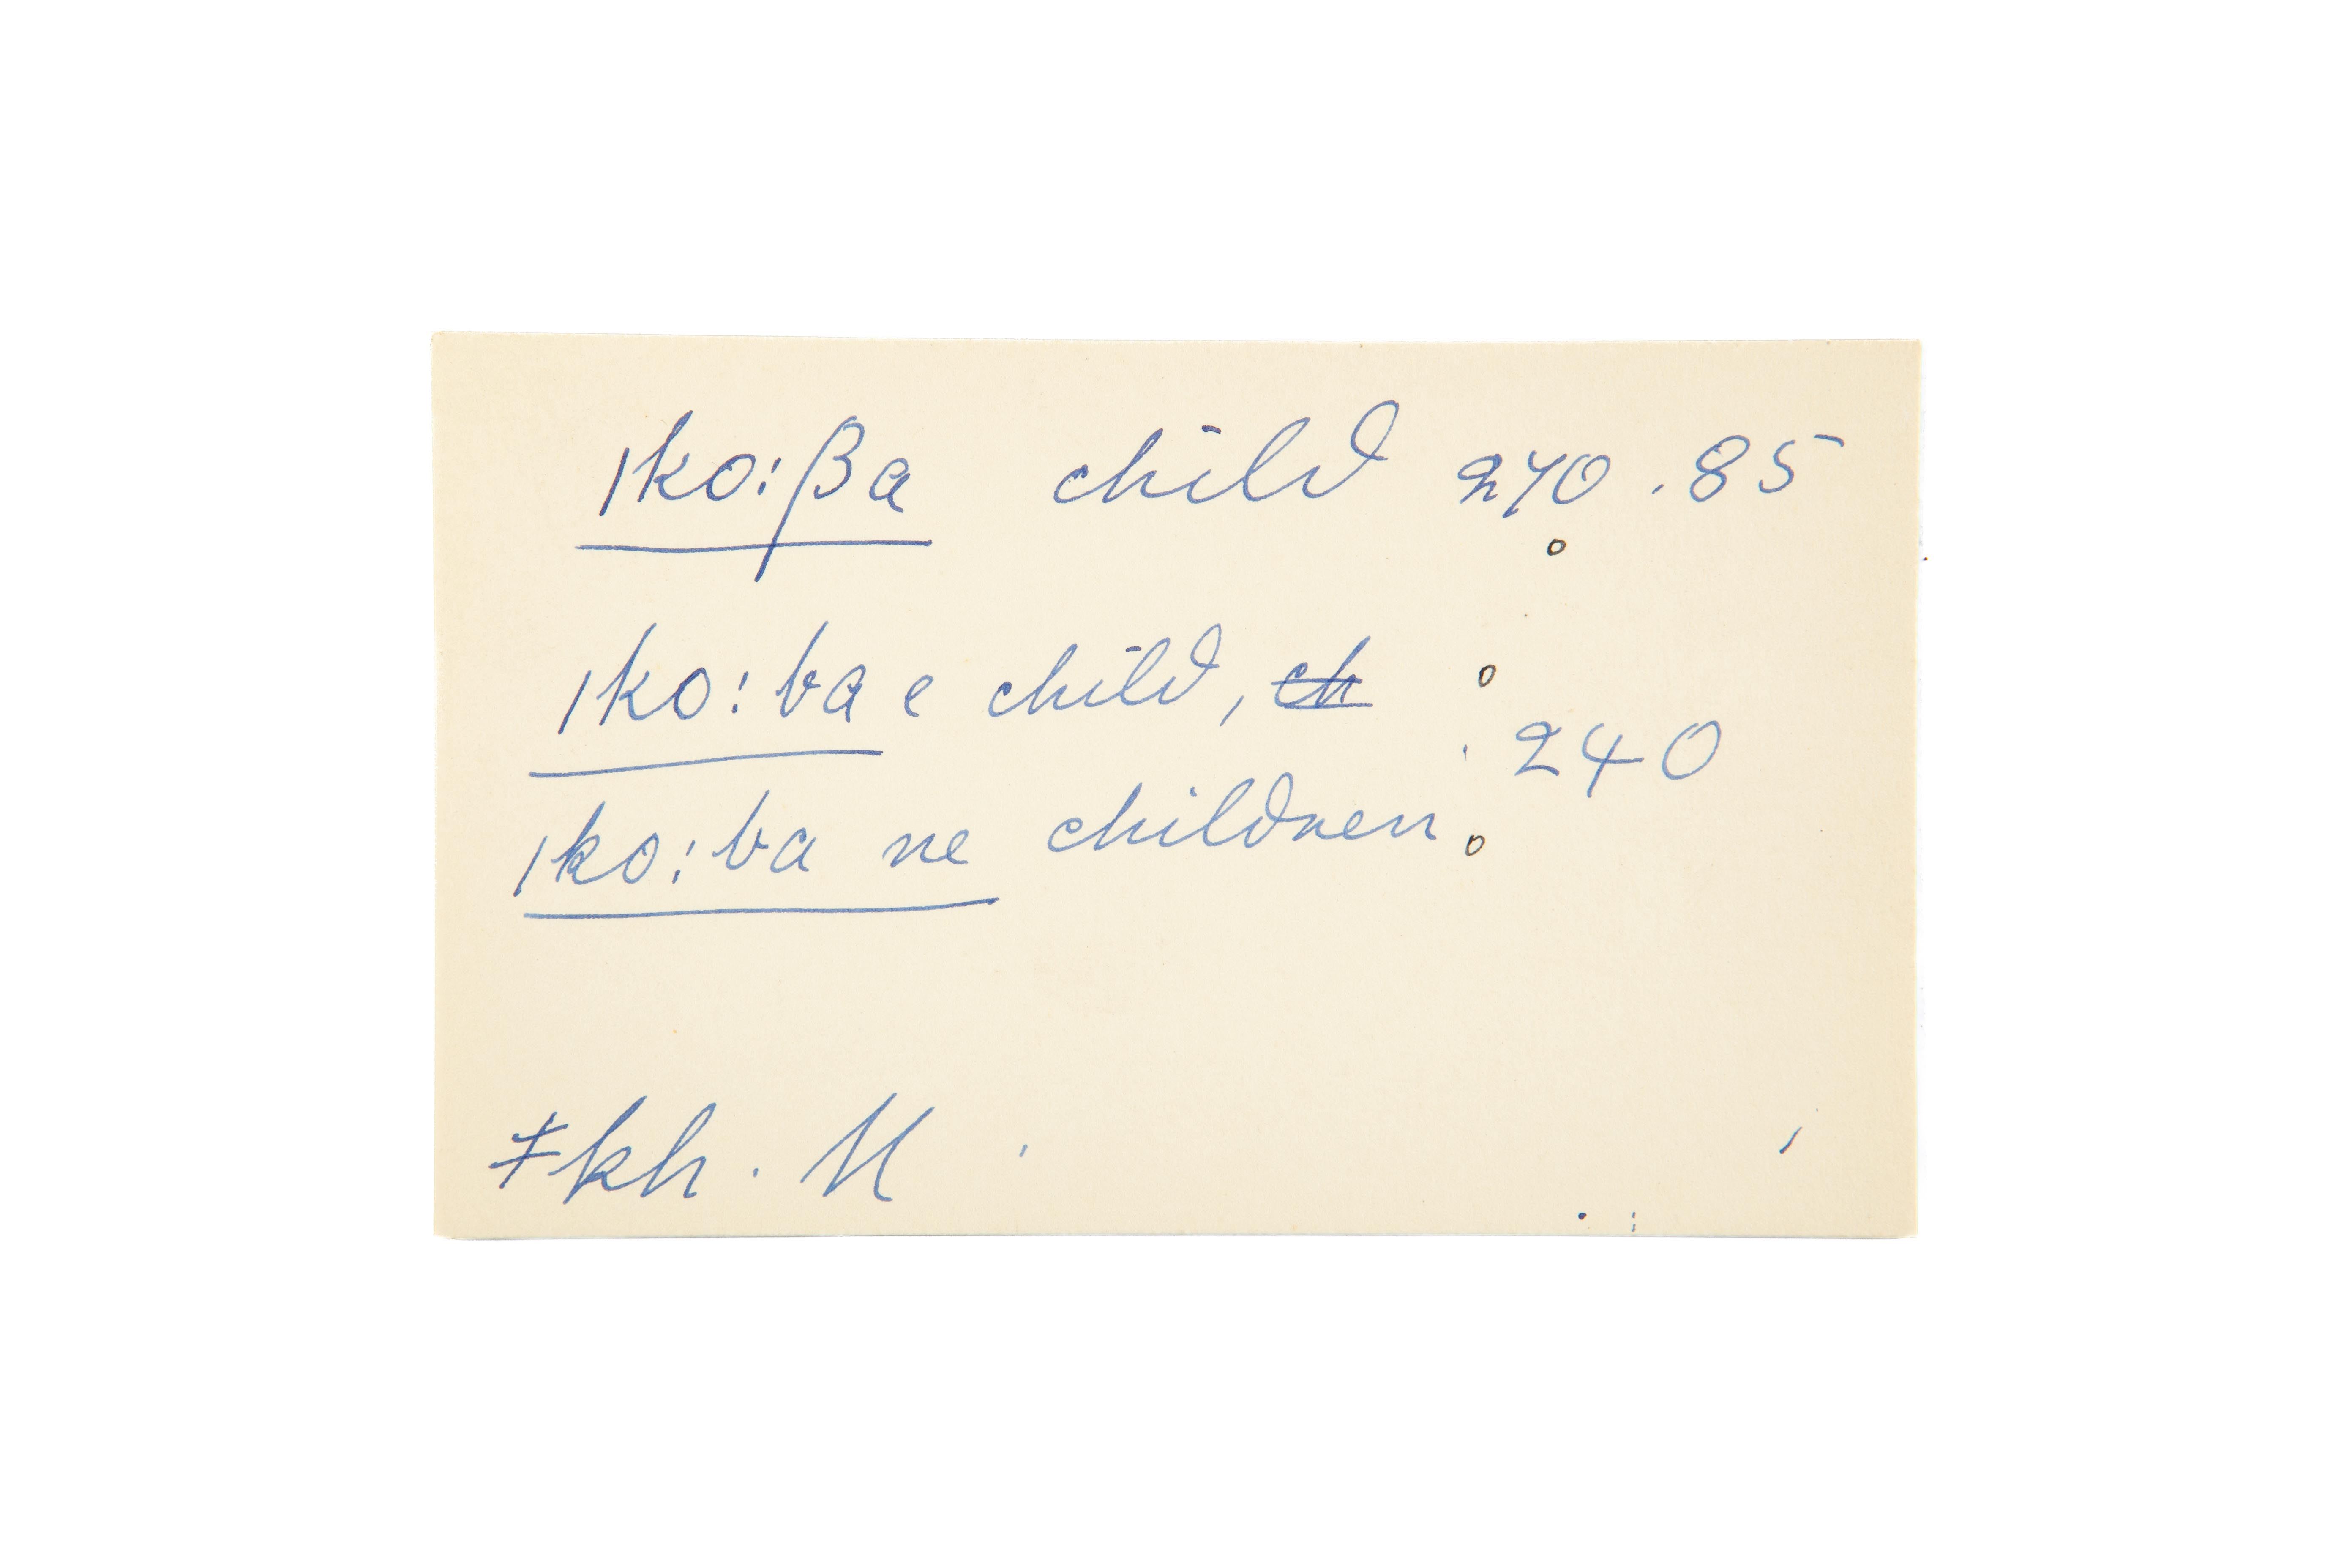 ǀko:βa child 270.85
ǀko:ba e child, ch
240
ǀko:ba ne children
ǂkh. M